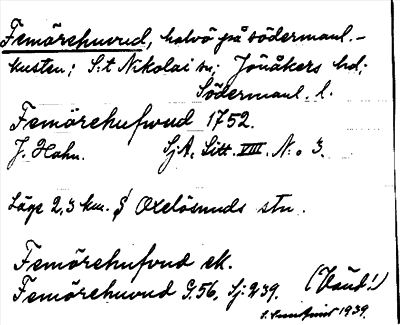 Femörehuvud, halvö på södermanl.-
kusten; S:t Nikolai sn; Jönåkers hd;
Södermanl. l.
Femörehufwud 1752.
J. Hahn. SjA, Litt. VIII, N:o 3.
Läge 2,3 km. S Oxelösunds stn.
Femörehufvud ek.
Femörehuvud G.56, Sj: 239. (Vaud!)
1939.